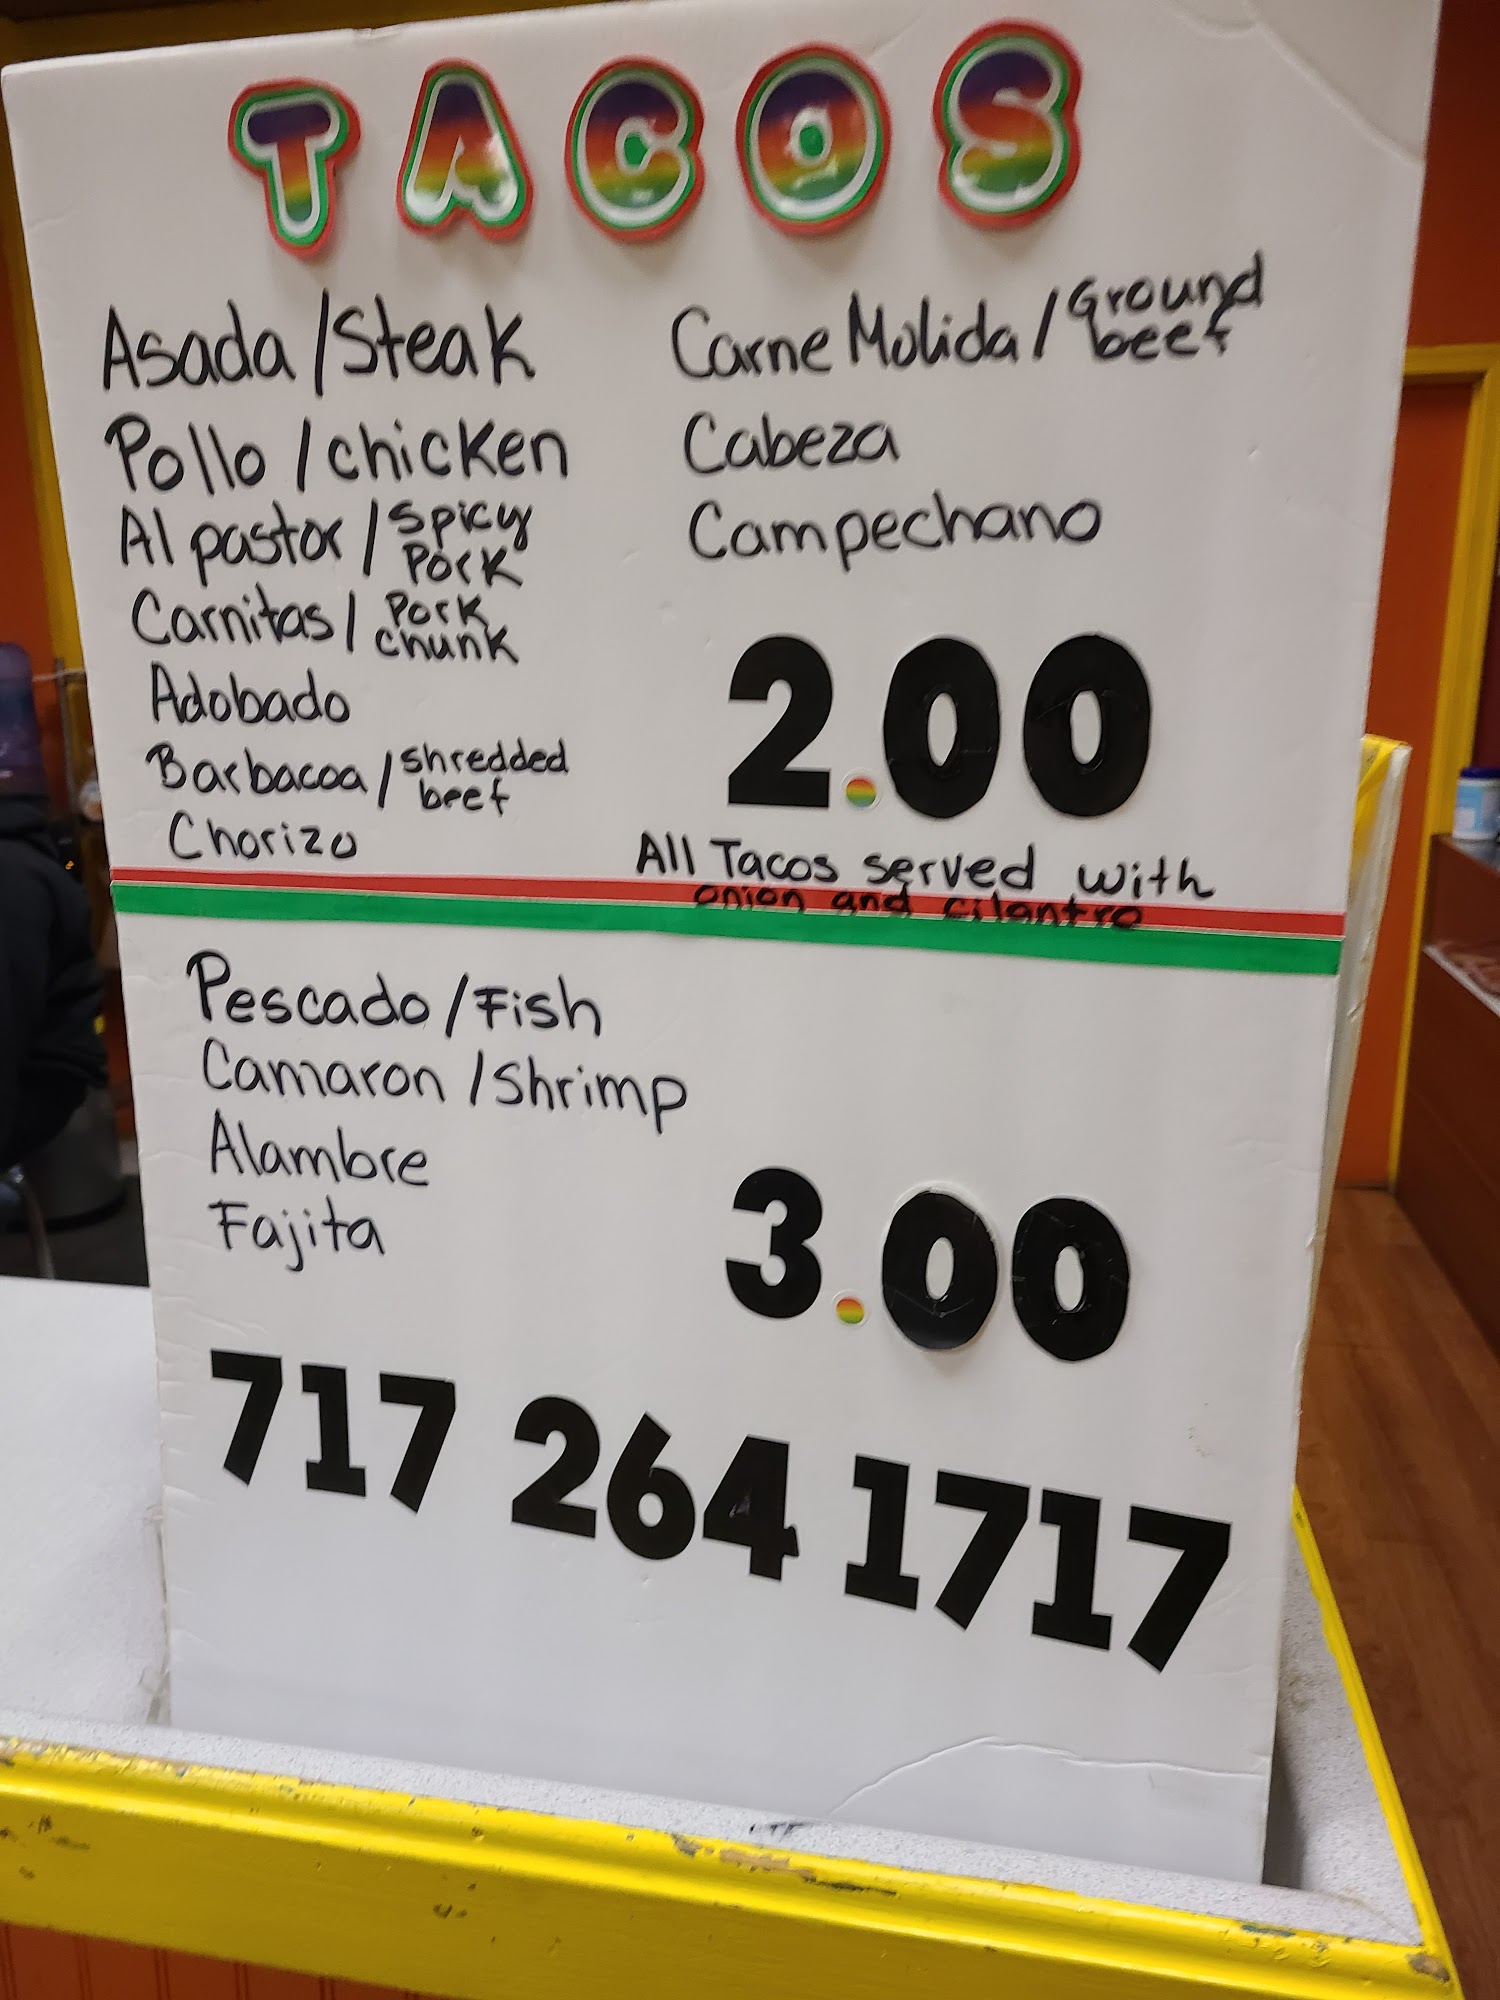 TACOS
Asada/Steak
Pollo/chicken
Al pastor/spicy Pork
Carnitas/Pork chunk
Adobado
Barbacoa/shredded beef
Chorizo
Carne Molida/Ground beef
Cabeza
Campechano
2.00
All Tacos served with
onion and cilantro
Pescado/Fish
Camaron/Shrimp
Alambre
Fajita
3.00
717 264 1717